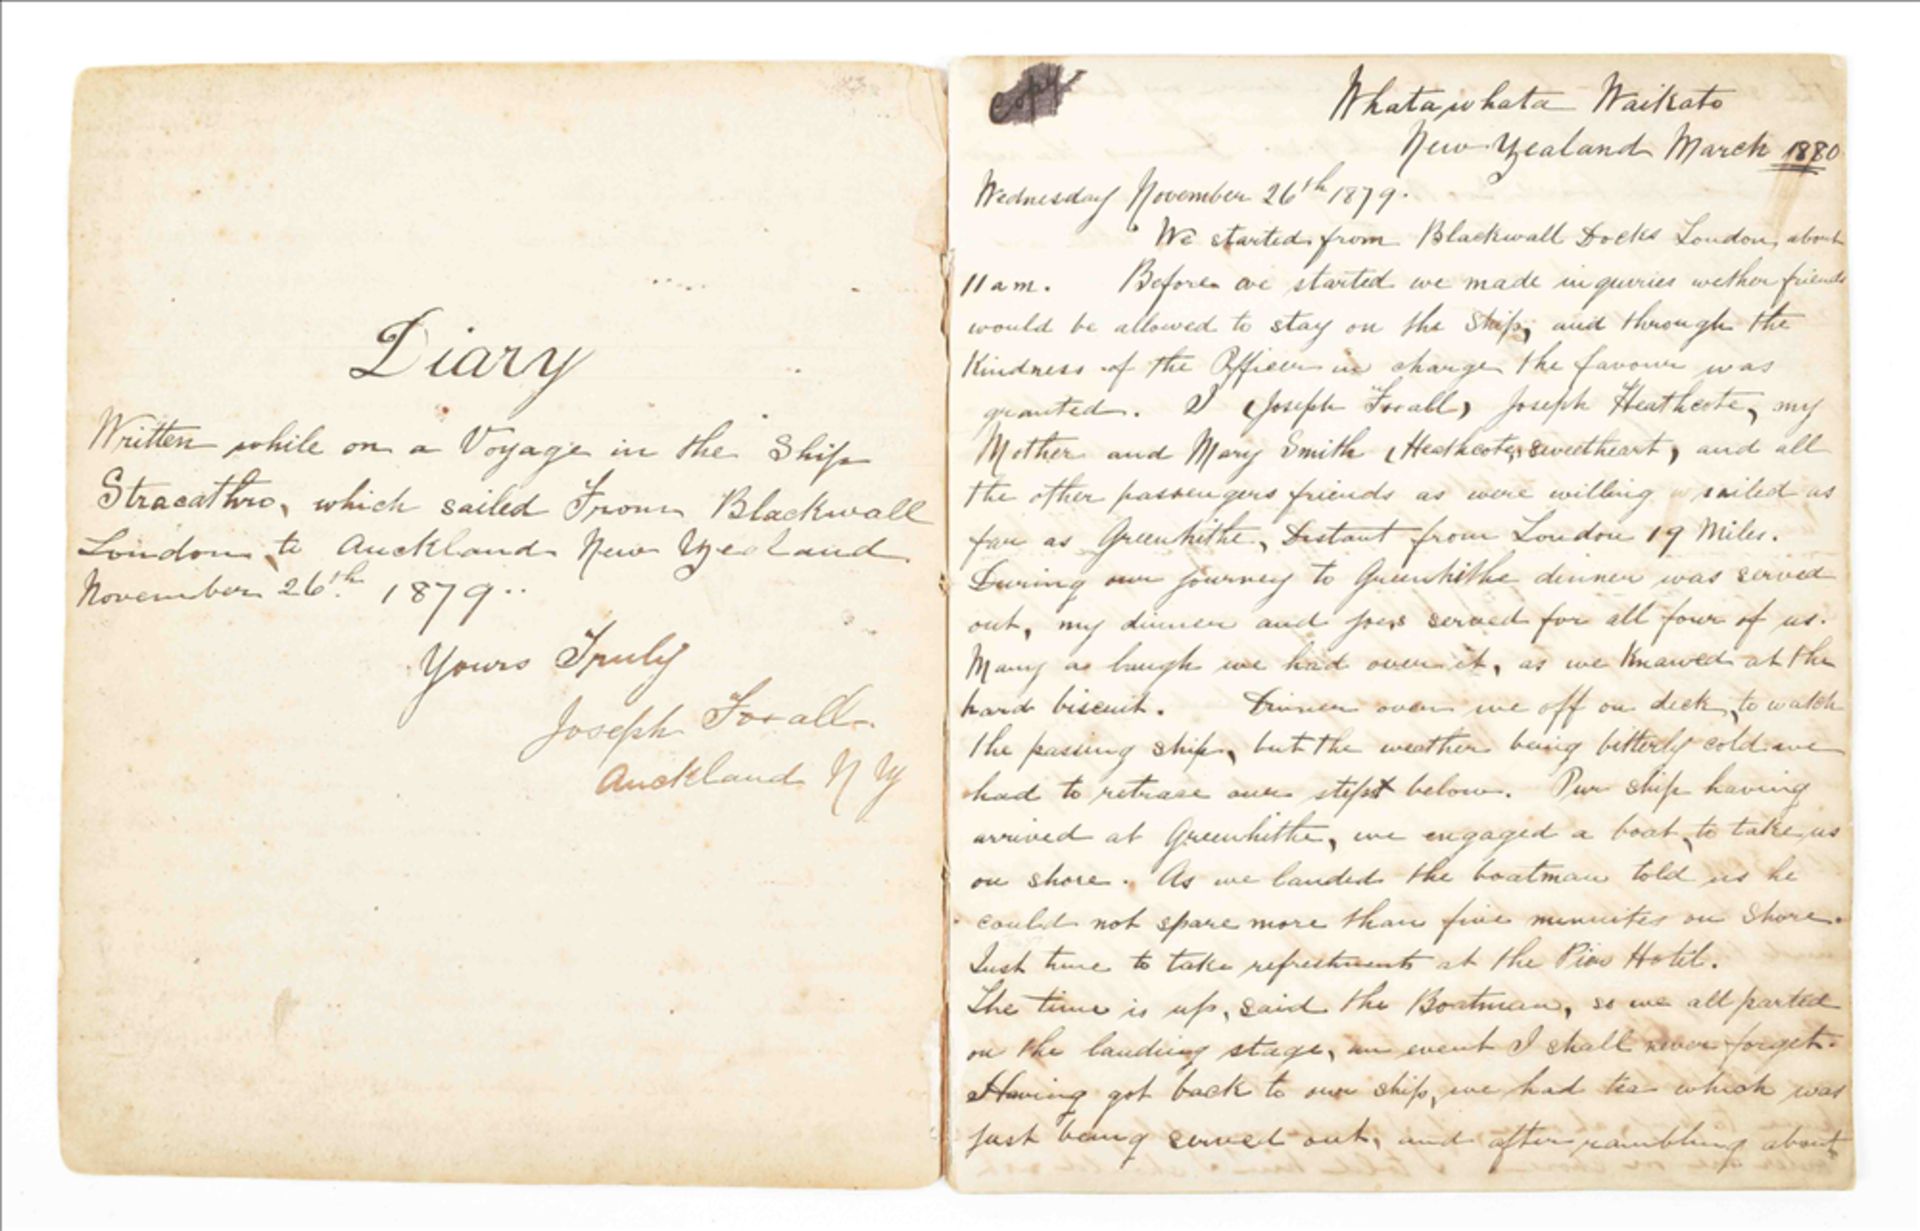 Diary
Written while on a Voyage in the Ship
Stracathro, which sailed From Blackwall
London to Auckland New Zealand
November 26th 1879..
Yours Truly
Joseph Foxall.
Auckland N Z
Copy
Whatawhata Waikato
New Zealand March 1880
Wednesday November 26th 1879.
We started from Blackwall Docks London, about
11 am. Before we started we made inquries wether friends
would be allowed to stay on the Ship, and through the
Kindness of the Officer in charge the favour was
granted. I (Joseph Foxall) Joseph Heathcote, my
Mother and Mary Smith (Heathcotes sweetheart) and all
the other passengers friends as were willing sailed as
far as Greenhithe, Distant from London 19 Miles.
During our journey to Greenhithe dinner was served
out, my dinner and Joes served for all four of us.
Many a laugh we had over it, as we Knawed at the
hard biscuit. Dinner over we off on deck, to watch
the passing ship, but the weather being bitterly cold we
had to retrase our steps below. Our ship having
arrived at Greenhithe, we engaged a boat, to take us
on shore. As we landed the boatman told us he
could not spare more than five minnites on Shore.
Just time to take refreshments at the Pier Hotel.
The time is up, said the Boatman, so we all parted
on the landing stage, an event I shall never forget.
Having got back to our ship, we had tea which was
just being served out, and after rambling about